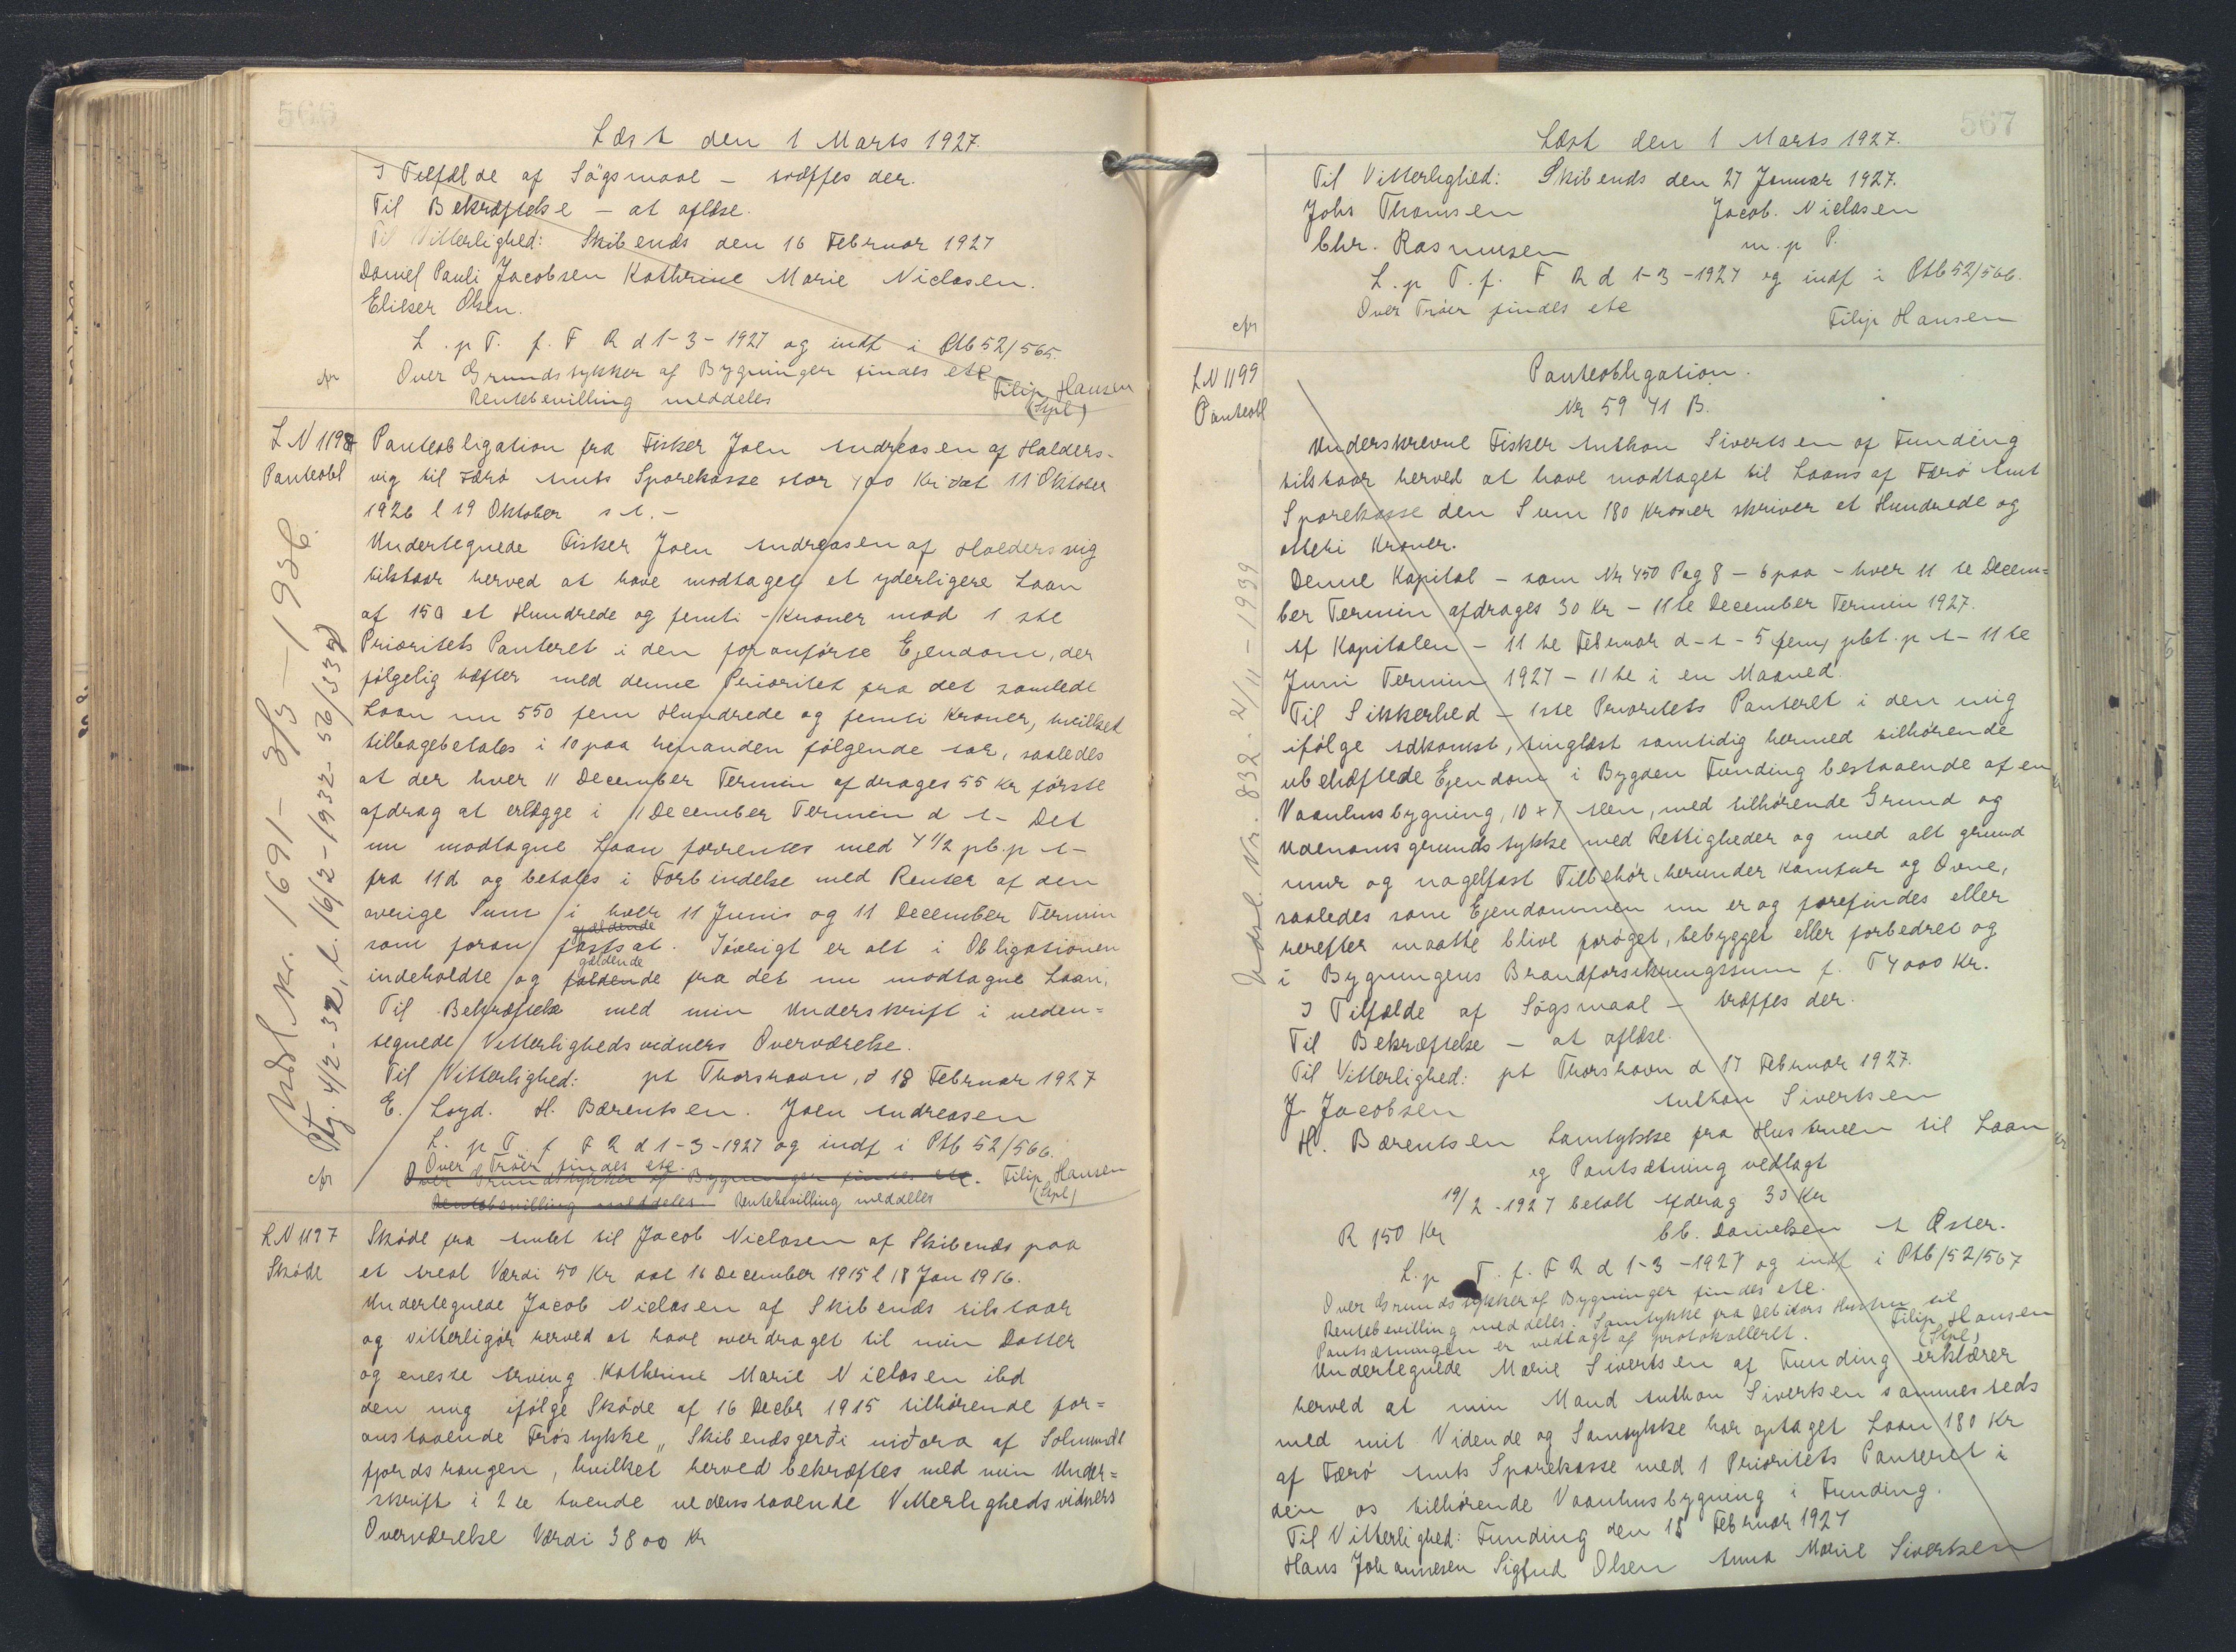 566
Læst den 1 Marts 1927.
I Tilfælde af Søgsmaal - træffes der.
Til Bekræftelse - at aflæse.
Til Vitterlighed: Skibends den 16 Februar 1927
Daniel Pauli Jacobsen Kathrine Marie Niclasen.
Elieser Olsen.
L. p T. f. F R d 1-3-1927 og indf i Ptb 52/565.
cfr Over Grundstykker af Bygninger findes etc
Rentebevilling meddeles Filip Hansen
(Spl)
L N 1198 Panteobligation fra Fisker Joen Andreasen af Halders-
Panteobl vig til Færø Amts Sparekasse stor 400 Kr dat 11 Oktober
1926 l 19 Oktober s. A. -
Undertegnede Fisker Joen Andreasen af Haldersvig
tilstaar herved at have modtaget et yderligere Laan
af 150 et Hundrede og femti - Kroner mod 1 ste
Prioritets Panteret i den foranførte Ejendom, der
følgelig hæfter med denne Prioritet fra det samlede
Laan nu 550 fem Hundrede og femti Kroner, hvilket
tilbagebetales i 10 paa hinanden følgende Aar, saaledes
at der hver 11 December Termin afdrages 55 Kr første
afdrag at erlægge i 11 December Termin d A - Det
nu modtagne Laan forrentes med 4 1/2 pb. p A -
fra 11 d og betales i Forbindelse med Renter af den
øvrige Sum i hver 11 Junis og 11 December Termin
gældende
som foran fastsat. Iøvrigt er alt i Obligationen
gældende
indeholdte og faldende fra det nu modtagne Laan.
Til Bekræftelse med min Underskrift i neden=
tegnede Vitterligheds vidners Overværelse.
Til Vitterlighed: pt Thorshavn, d 18 Februar 1927
E. Loyd. H. Bærentsen. Joen Andreasen
L. p T f F R d 1-3-1927 og indf i Ptb 52/566.
Over Trøer findes etc.
cfr Over Grundstykker af Bygninger findes etc. Filip Hansen
Rentebevilling meddeles Rentebevilling meddeles (Spl)
L N 1197 Skøde fra Amtet til Jacob Niclasen af Skibends paa
Skøde et Areal Værdi 50 Kr dat 16 December 1915 l 18 Jan 1916.
Undertegnede Jacob Niclasen af Skibends tilstaar
og vitterligør herved at have overdraget til min Datter
og eneste Arving Kathrine Marie Niclasen ibd
den mig ifølge Skøde af 16 Decbr 1915 tilhørende for=
anstaaende Trøstykke „ Skibendsgerði niðara af Solmundt
fjordshaugen, hvilket herved bekræftes med min Under=
skrift i 2 te tvende nedenstaaende Vitterligheds vidners
Overværelse Værdi 3800 Kr
Udsl Nr. 1691 - 3/9 - 1936.
Ptg. 4/2 - 32, l. 16/2 - 1932 - 56/339
567
Læst den 1 Marts 1927.
Til Vitterlighed: Skibends den 27 Januar 1927.
Johs Thomsen Jacob. Niclasen
Chr. Rasmussen m. p P.
L. p T. f. F R d 1-3-1927 og indf i Ptb 52/566.
Over Trøer findes etc
cfr Filip Hansen
L N 1199 Panteobligation.
Panteobl Nr 59 41 B.
Underskrevne Fisker Anthon Sivertsen af Funding
tilstaar herved at have modtaget til Laans af Færø Amt
Sparekasse den Sum 180 Kroner skriver et Hundrede og
otteti Kroner.
Denne Kapital - som Nr 450 Pag 8 - 6 paa - hver 11 te Decem=
ber Termin afdrages 30 Kr - 11te December Termin 1927.
Af Kapitalen - 11 te Februar d - A - 5 fem, pbt. p A - 11 te
Juni Termin 1927 - 11 te i en Maaned.
Til Sikkerhed - 1ste Prioritets Panteret i den mig
ifølge Adkomst, tinglæst samtidig hermed tilhørende
ubehæftede Ejendom i Bygden Funding bestaaende af en
Vaanhusbygning, 10 x 7 Alen, med tilhørende Grund og
Udenomsgrundstykke med Rettigheder og med alt grund
mur og nagelfast Tilbehør, herunder Komfur og Ovne,
saaledes som Ejendommen nu er og forefindes eller
herefter maatte blive forøget, bebygget eller forbedret og
i Bygningens Brandforsikringssum f. T 4000 Kr.
I Tilfælde af Søgsmaal - træffes der.
Til Bekræftelse - at aflæse.
Til Vitterlighed: pt Thorshavn d 17 Februar 1927.
J. Jacobsen Anthon Sivertsen
H. Bærentsen Samtykke fra Hustruen til Laan
og Pantsætning vedlagt
19/2 - 1927 betalt Afdrag 30 Kr
R 150 Kr bb. Danielsen A Øster.
L. p T. f. F R d 1-3-1927 og indf i Ptb/52/567
Over Grundstykker af Bygninger findes etc.
Rentebevilling meddeles. Samtykke fra Debitors Hustru til
Pantsætningen er vedlagt af protokolleret. Filip Hansen
(Spl)
Undertegnede Marie Sivertsen af Funding erklærer
herved at min Mand Anthon Sivertsen sammesteds
med mit Vidende og Samtykke har optaget Laan 180 Kr
af Færø Amts Sparekasse med 1 Prioritets Panteret i
den os tilhørende Vaanhusbygning i Funding.
Til Vitterlighed: Funding den 15 Februar 1927
Hans Johannesen Sigfrid Olsen Anna Marie Sivertsen
Udsl. Nr. 832 - 2/11 - 1939